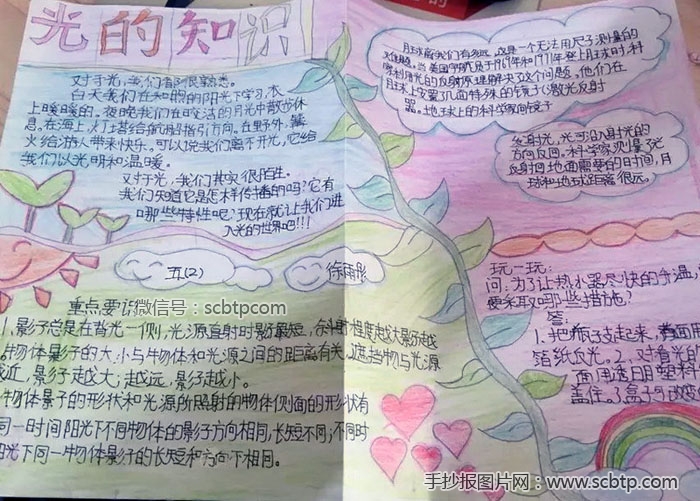 光的知识
对于光，我们都很熟悉。
白天我们在和煦的阳光下学习，衣
上暖暖的。夜晚我们在皎洁的月光中散步休
息。在海上，灯塔给航船指引方向。在野外，篝
火给游人带来快乐。可以说我们离不开光，它给
我们以光明和温暖。
对于光，我们其实很陌生。
我们知道它是怎样传播的吗？它有
哪些特性呢？现在就让我们进
入光的世界吧！！！
五(2)
徐雨彤
重点要识
微信号：scbtpcom
1、影子总是在背光一侧，光源直射时影最短，倾斜程度越大影子越
物体影子的大小与物体和光源之间的距离有关，遮挡物与光源
越近，影子越大；越远，影子越小。
物体景子的形状和光源所照射的物体侧面的形状有
同一时间阳光下不同物体的影子方向相同，长短不同；不同时
阳光下同一物体影子的长短和方向不相同。
月球离我们有多远，这是一个无法用尺子测量的
难题。当美国宇航员于1969年和1971年登上月球时，科
学家利用光的反射原理解决了这个问题。他们在
月球上安置了几面特殊的镜子(激光反射
器)。地球上的科学家向镜子
发射光，光可沿入射光的
方向反回。科学家测量了光
反射回地面需要的时间，月
球和地球距离很远。
玩一玩：
问：为了让热水器尽快的升温，
要采取如哪些措施？
答：
1.把瓶子支起来，背面用
箔纸反光。2.对着光的
面用透日月塑料
盖住。3.盒子
手抄报图片网：www.scbtp.com